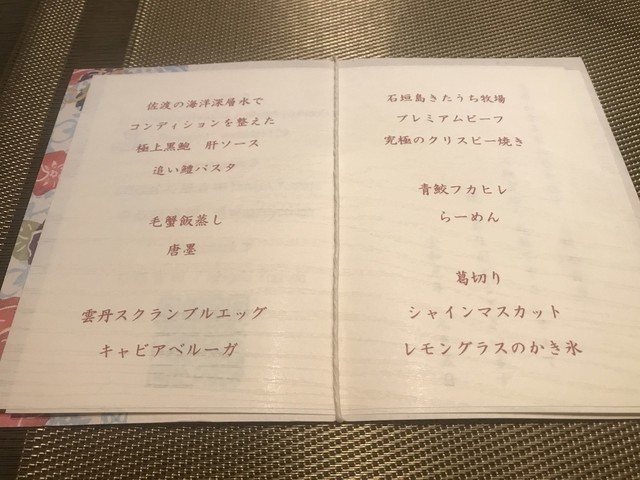 佐渡の海洋深層水で
コンディションを整えた
極上黒鮑　肝ソース
追い鱧パスタ
毛蟹飯蒸し
唐墨
雲丹スクランブルエッグ
キャビアベルーガ
石垣島きたうち牧場
プレミアムビーフ
究極のクリスピー焼き
青鮫フカヒレ
らーめん
葛切り
シャインマスカット
レモングラスのかき氷